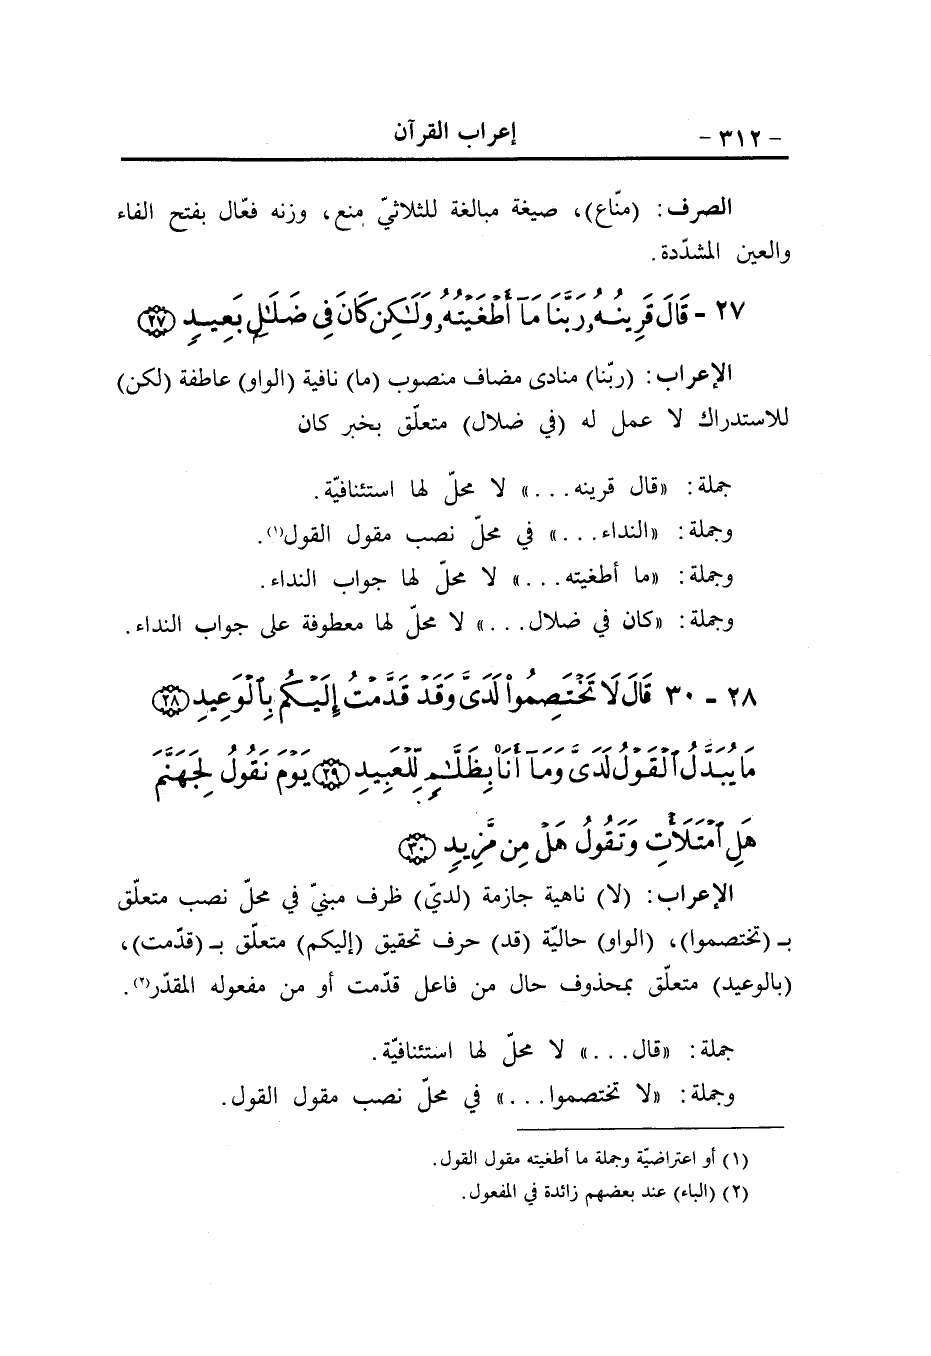 - ٣١٢ -
إعراب القرآن
الصرف: (منّاع)، صيغة مبالغة للثلاثيّ منع، وزنه فعّال بفتح الفاء
والعين المشدّدة.
٢٧ - قَالَ قَرِينُهُۥ رَبَّنَا مَآ أَطْغَيْتُهُۥ وَلَٰكِن كَانَ فِى ضَلَٰلٍۭ بَعِيدٍ ﴿٢٧﴾
الإعراب: (ربّنا) منادى مضاف منصوب (ما) نافية (الواو) عاطفة (لكن)
للاستدراك لا عمل له (في ضلال) متعلّق بخبر كان
جملة: «قال قرينه...» لا محلّ لها استئنافيّة.
وجملة: «النداء...» في محلّ نصب مقول القول(١).
وجملة: «ما أطغيته...» لا محلّ لها جواب النداء.
وجملة: «كان في ضلال...» لا محلّ لها معطوفة على جواب النداء.
٢٨ - ٣٠ قَالَ لَا تَخْتَصِمُوا۟ لَدَىَّ وَقَدْ قَدَّمْتُ إِلَيْكُم بِٱلْوَعِيدِ ﴿٢٨﴾
مَا يُبَدَّلُ ٱلْقَوْلُ لَدَىَّ وَمَآ أَنَا۠ بِظَلَّٰمٍ لِّلْعَبِيدِ ﴿٢٩﴾ يَوْمَ نَقُولُ لِجَهَنَّمَ
هَلِ ٱمْتَلَأْتِ وَتَقُولُ هَلْ مِن مَّزِيدٍ ﴿٣٠﴾
الإعراب: (لا) ناهية جازمة (لديّ) ظرف مبنيّ في محلّ نصب متعلق
بـ (تختصموا)، (الواو) حاليّة (قد) حرف تحقيق (إليكم) متعلّق بـ (قدّمت)،
(بالوعيد) متعلّق بمحذوف حال من فاعل قدّمت أو من مفعوله المقدّر(٢).
جملة: «قال...» لا محلّ لها استئنافيّة.
وجملة: «لا تختصموا...» في محلّ نصب مقول القول.
(١) أو اعتراضيّة وجملة ما أطغيته مقول القول.
(٢) (الباء) عند بعضهم زائدة في المفعول.